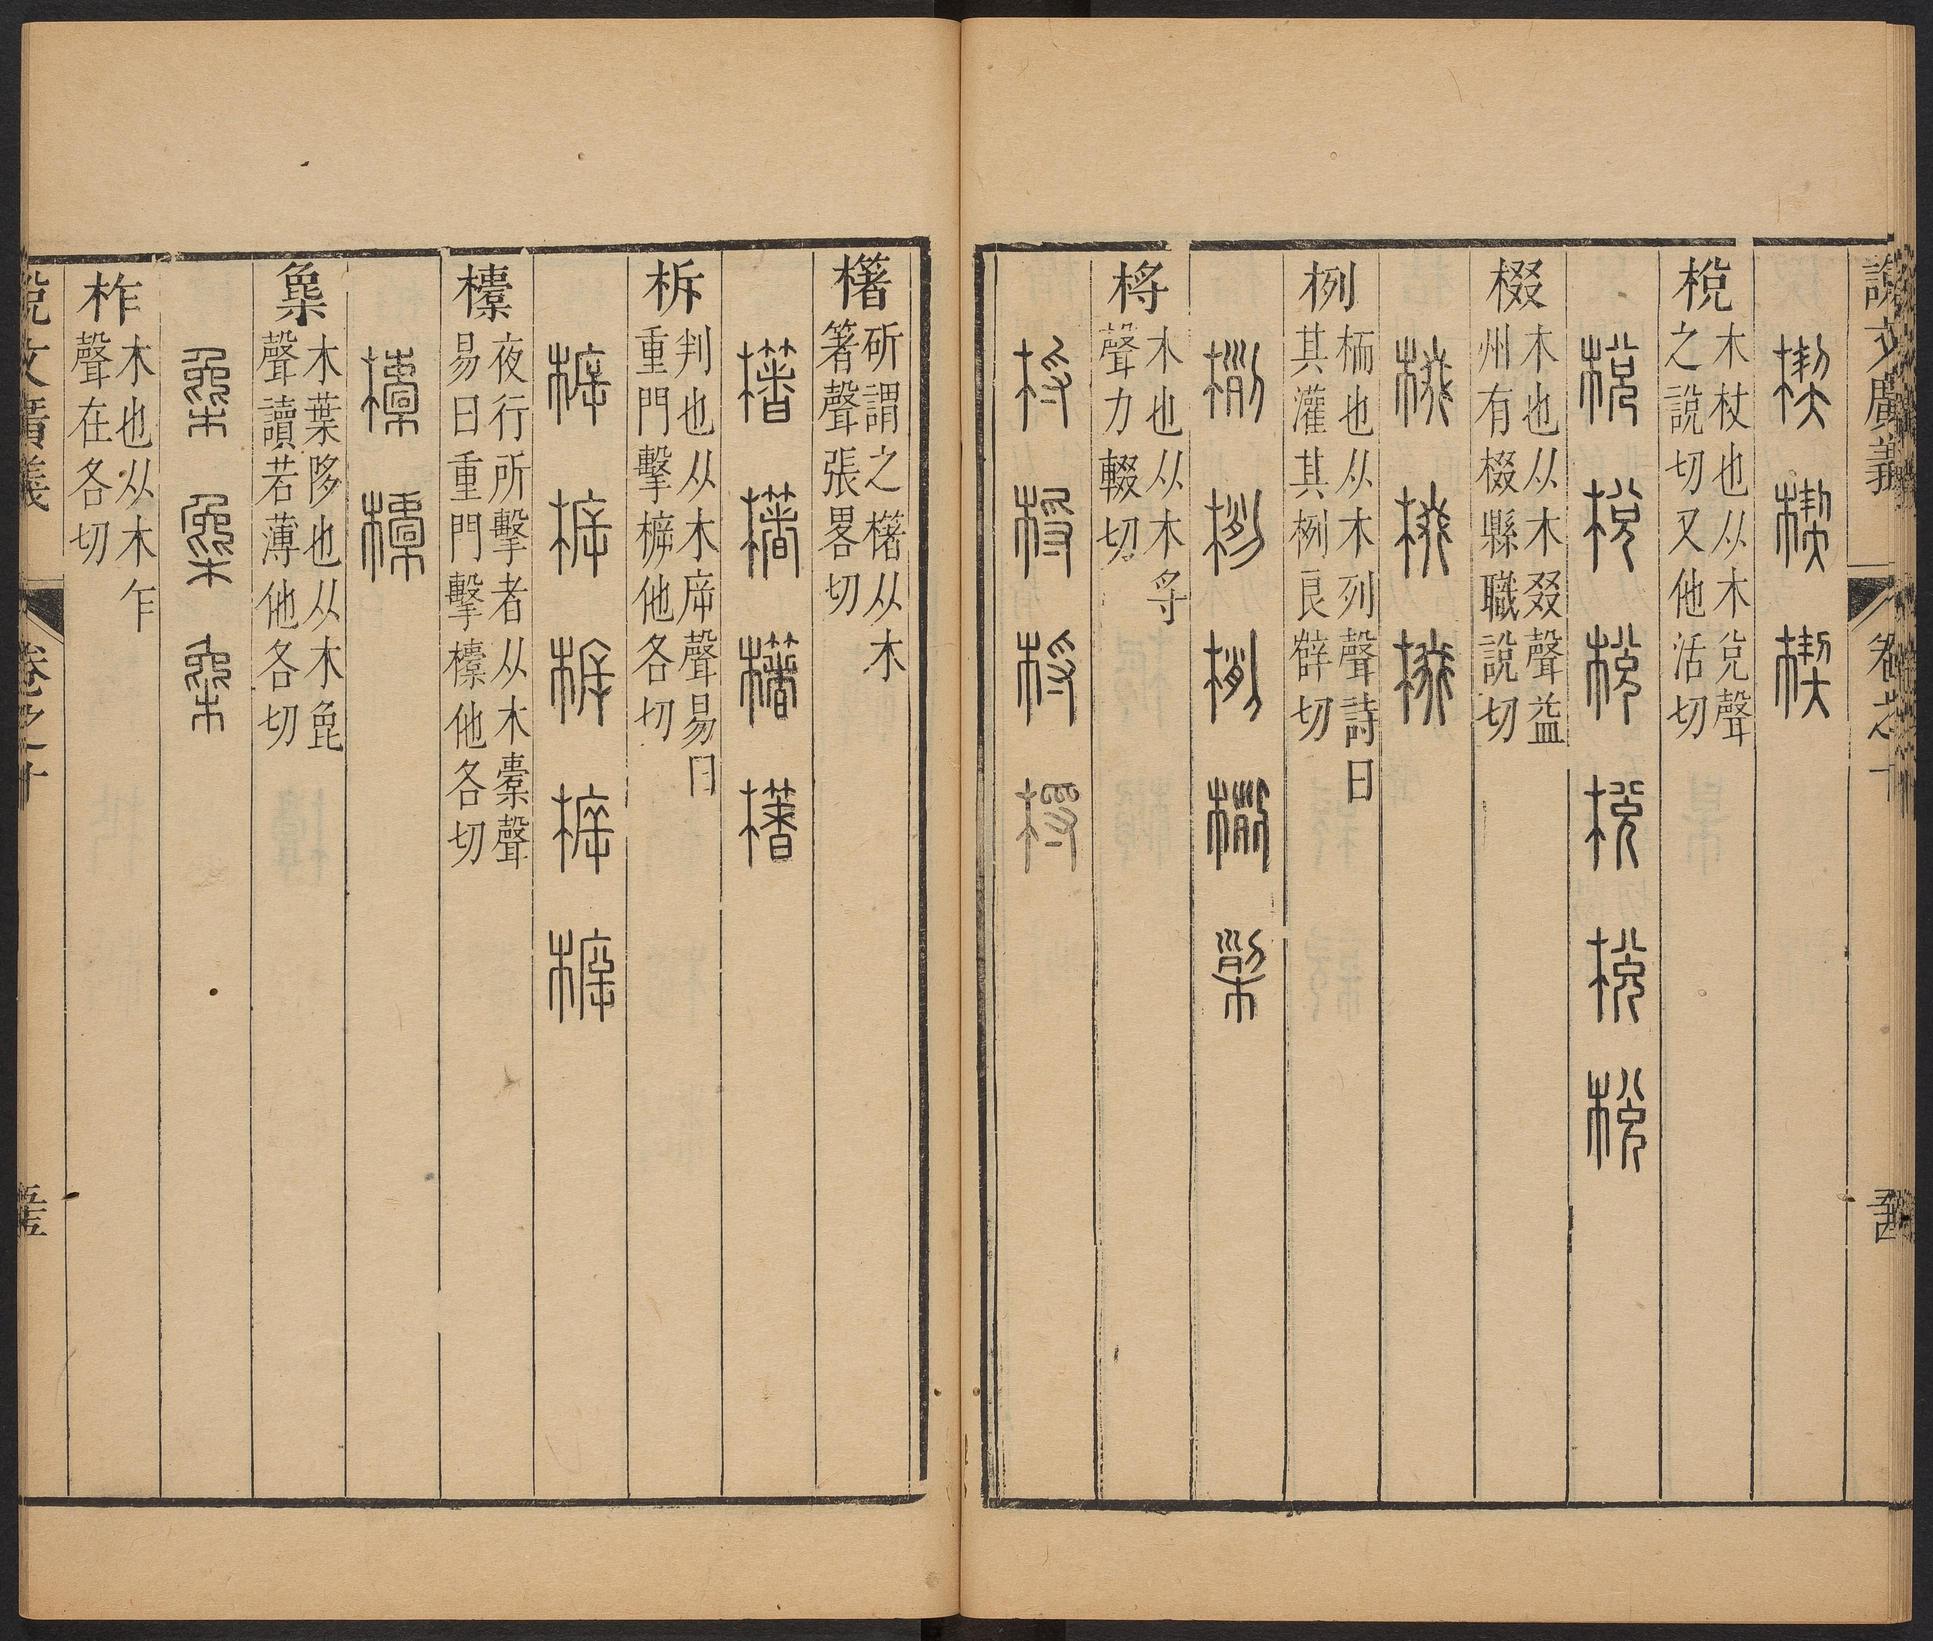 說文廣義 卷之十 五十四
楔 楔 楔
梲 木杖也从木兌聲
之說切又他活切
梲 梲 梲 梲 梲 梲
棳 木也从木叕聲益
州有棳縣職說切
棳 棳 棳
栵 栭也从木列聲詩曰
其灌其栵良辥切
栵 栵 栵 栵
桪 木也从木寽
聲力輟切
櫡 斫謂之櫡从木
箸聲張畧切
櫡 櫡 櫡 櫡
柝 判也从木㡿聲易曰
重門擊㯌他各切
㯌 㯌 㯌 㯌 㯌
欜 夜行所擊者从木橐聲
易曰重門擊欜他各切
欜 欜
㲋 木葉陊也从木㲋
聲讀若薄他各切
柞 木也从木乍
聲在各切
說文廣義 卷之十 五十五